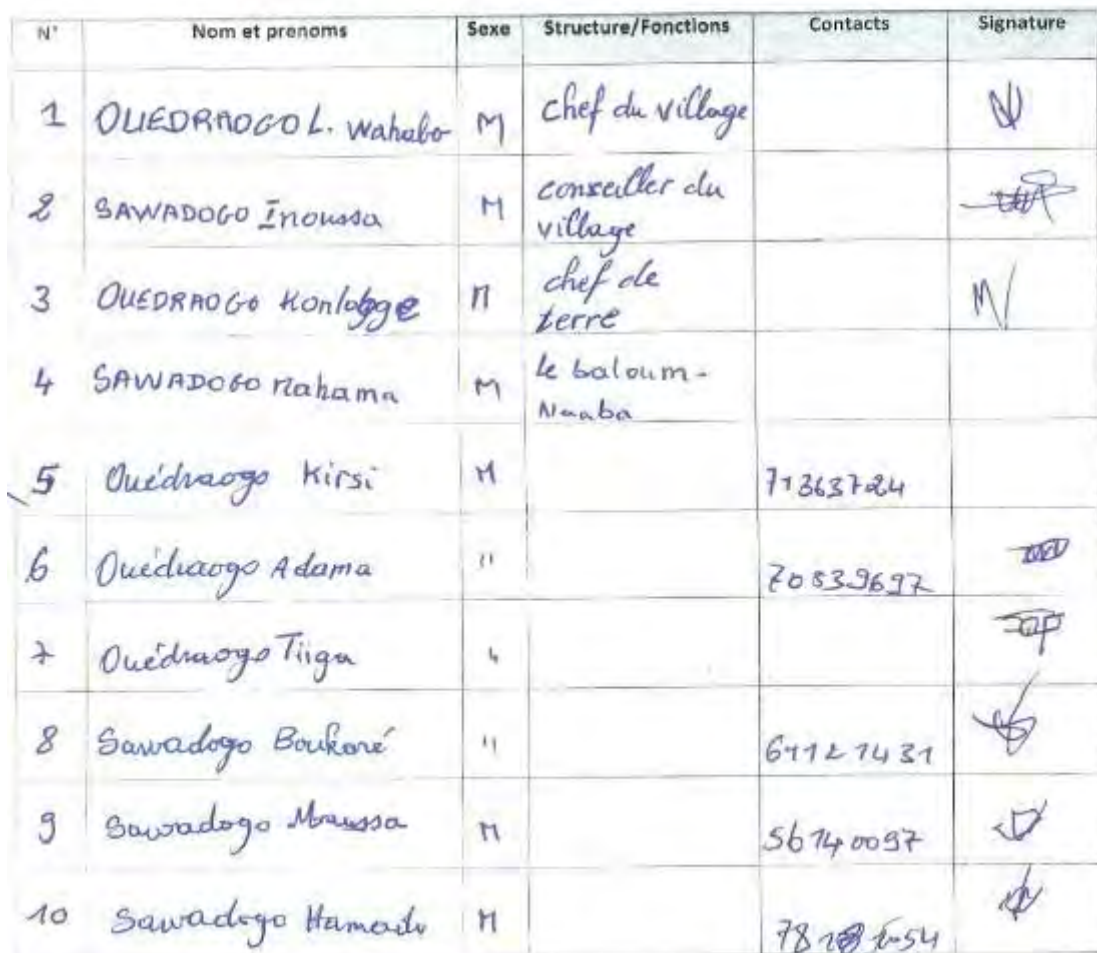 N° Nom et prenoms Sexe Structure/Fonctions Contacts Signature
1 OUEDRAOGO L. Wahabo M chef du village
2 SAWADOGO Inoussa M conseiller du
village
3 OUEDRAOGO M chef de
terre
4 SAWADOGO Mahama M le baloum-
Naaba
5 Ouédraogo Kirsi M 71363724
6 Ouédraogo Adama " 70839697
7 Ouédraogo Tiiga "
8 Sawadogo Boukaré " 61121431
9 Sawadogo Moussa M 56140097
10 Sawadogo Hamado M